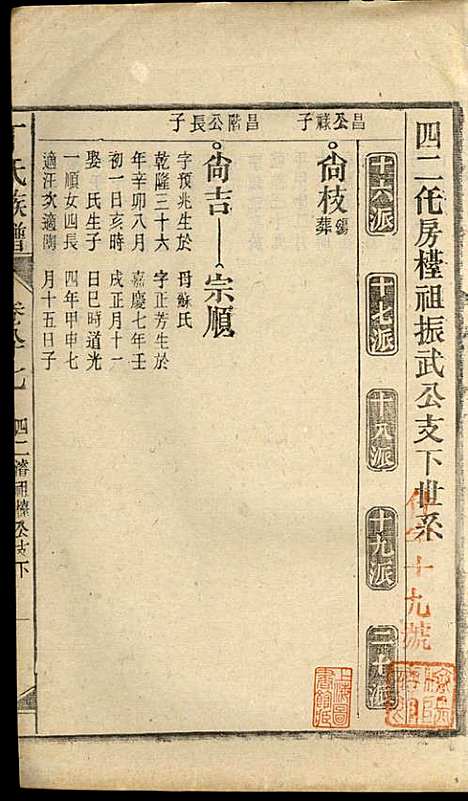 四二任房檯祖振武公支下世系
十九號
十六派
十七派
十八派
十九派
二十派
昌公祿子
尚枝
葬
昌階公長子
尚吉
宗順
字預兆生於
乾隆三十六
年辛卯八月
初一日亥時
娶 氏生子
一順女四長
適汪次適
母蘇氏
字正芳生於
嘉慶七年壬
戌正月十一
日巳時道光
四年甲申七
月十五日子
丁氏族譜
上海圖書館藏